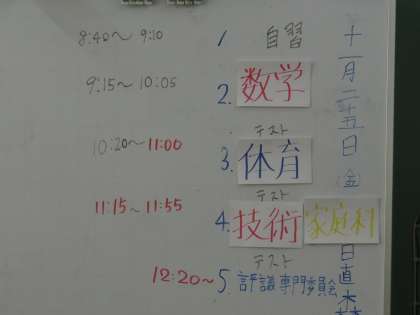 十一月二十五日(金)
日直
8:40〜 9:10 1 自習
9:15〜 10:05 2. 数学
テスト
10:20〜 11:00 3. 体育
テスト
11:15〜 11:55 4. 技術 家庭科
テスト
12:20〜 5. 評議専門委員会